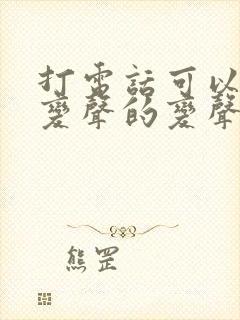 打電話可以
變聲的變聲
熊罡